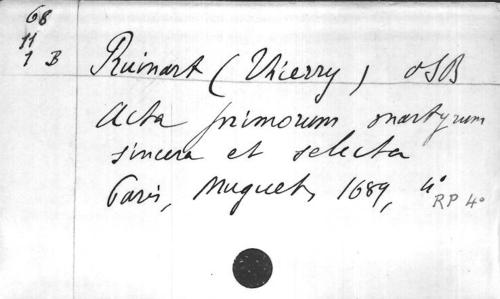 68
11
1 B
Ruinart (Thierry) OSB
Acta primorum martyrum
sincera et selecta
Paris, Muguet, 1689, 4°
RP 4°